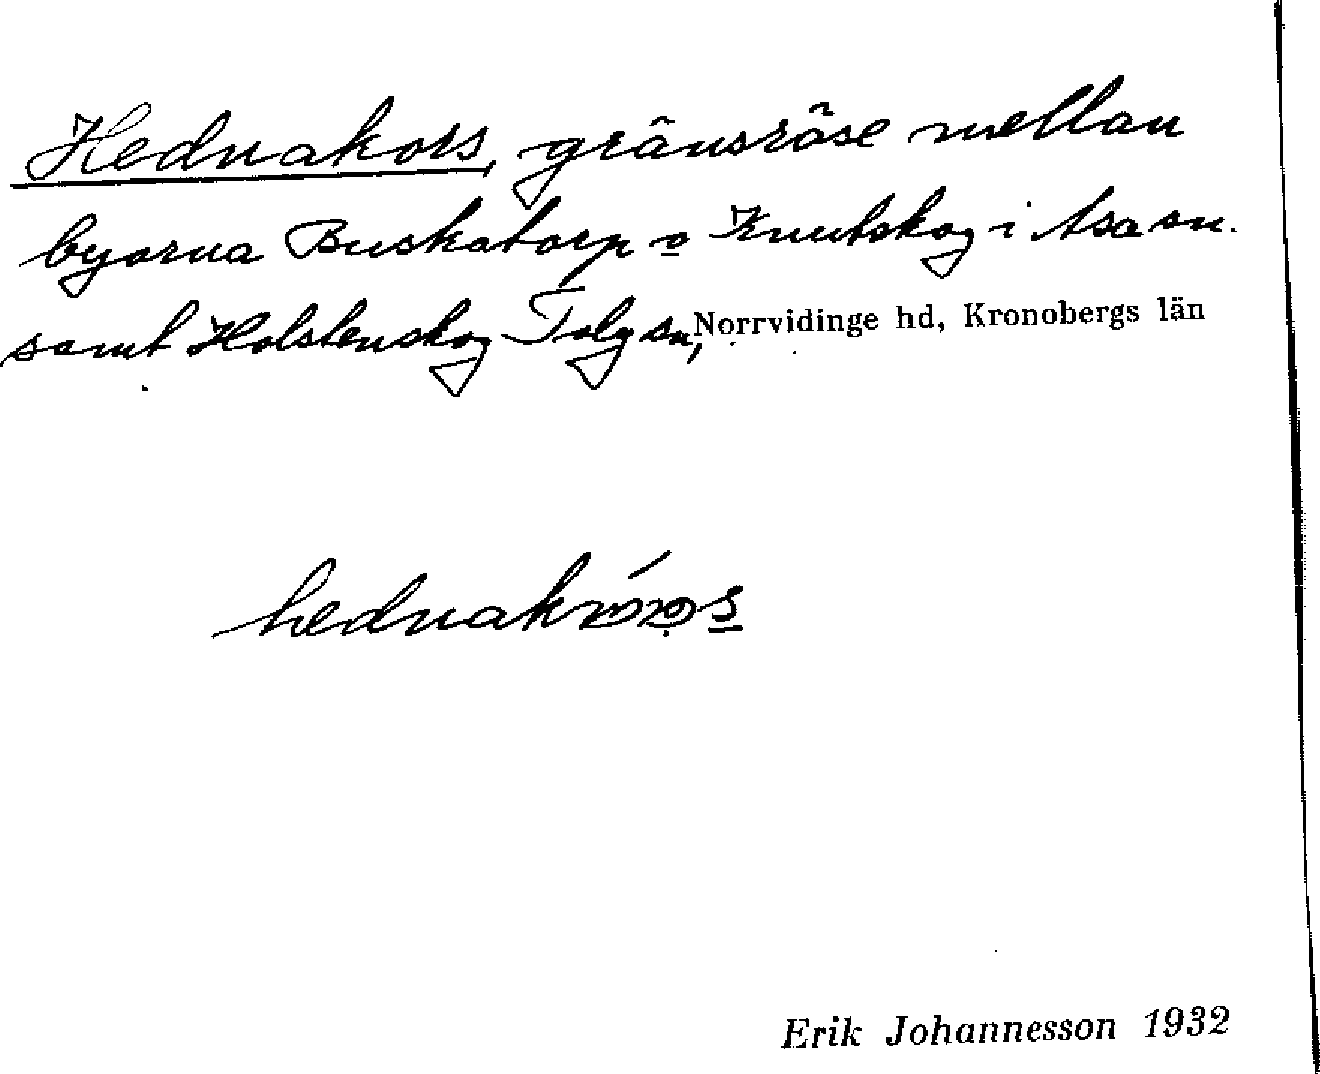 Hednakors, gränsröse mellan
byarna Buskatorp o Knutskog i Asa sn.
samt Holstenskog Tolg sn, Norrvidinge hd, Kronobergs län
Erik Johannesson 1932